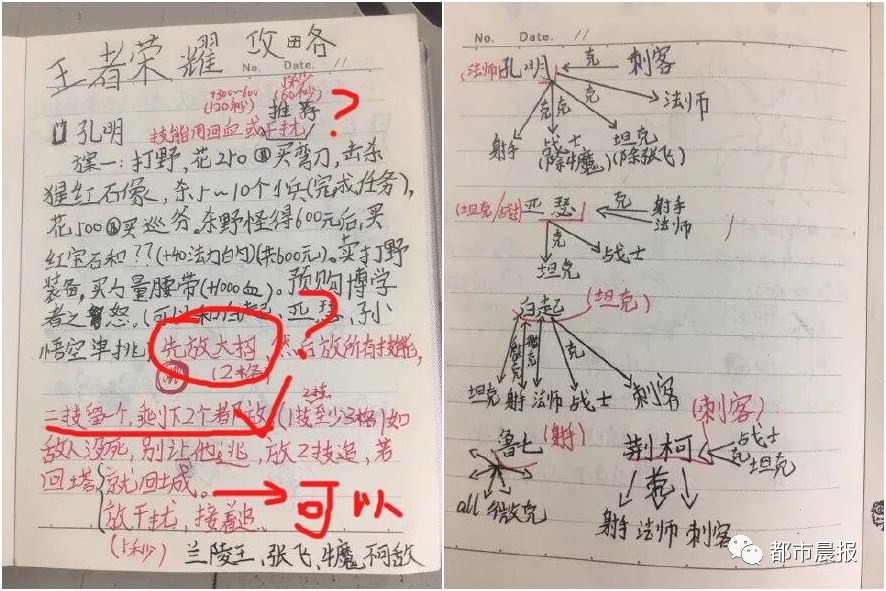 王者荣耀 攻略
No. Date.
+300~600
(120秒)
(60秒)
推荐?
孔明 技能用回血或干扰
方案一:打野,花250買弯刀,击杀
猩红石像,杀5~10个小兵(完成任务),
花500买巡夯,杀野怪得600元后,买
红宝石和??(+40法力白勺)(共600元)。卖打野
装备,买力量腰带(+1000血)。预购博学
者之怒。(可以和白起、亚瑟、孙
悟空单挑,先放大招,然后放所有技能,
(2格)
?
二技留一个,剩下2个都放(1技至少3格)如
敌人没死,别让他逃,放2技追,若
回塔 就回城。
可以
放干扰,接着追。
(15秒)
兰陵王、张飞、牛魔,不可敌
No. Date.
(法师)孔明 克 刺客
克 克 克 法师
射手 战士 坦克
(除牛魔) (除张飞)
(坦克/战士)亚瑟 克 射手
法师
克
坦克 战士
白起 (坦克)
微克 微克 克
坦克 射手 法师 战士 刺客
鲁七 (射手)
all 微克
(刺客)
荆柯 克 战士
坦克
克
射手 法师 刺客
都市晨报